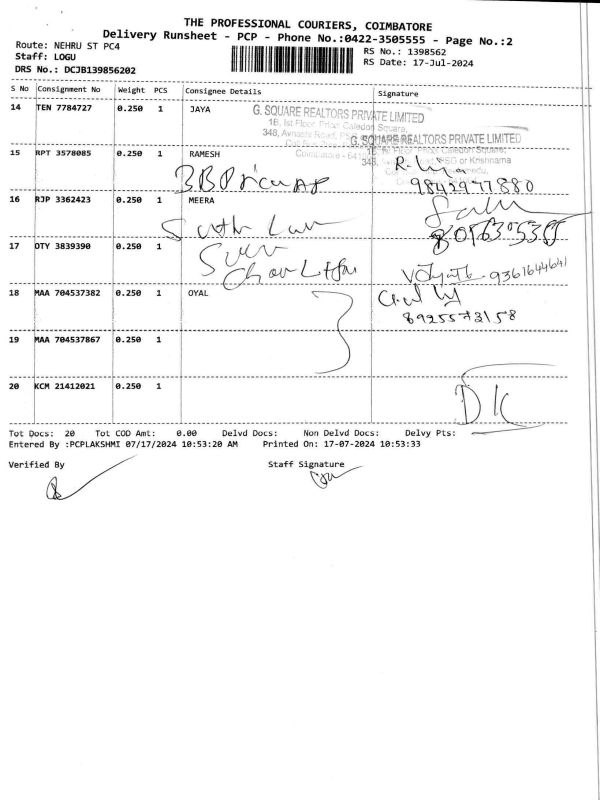 THE PROFESSIONAL COURIERS, COIMBATORE
Delivery Runsheet - PCP - Phone No.:0422-3505555 - Page No.:2
Route: NEHRU ST PC4
RS No.: 1398562
Staff: LOGU
RS Date: 17-Jul-2024
DRS No.: DCJB139856202
S No Consignment No Weight PCS Consignee Details Signature
14 TEN 7784727 0.250 1 JAYA
G. SQUARE REALTORS PRIVATE LIMITED
1B, Ist Floor, Prica Caledon Square,
348, Avnashi Road,
G. SQUARE REALTORS PRIVATE LIMITED
Coimbatore - 641
HSG or Krishnama
15 RPT 3578085 0.250 1 RAMESH
9842977880
16 RJP 3362423 0.250 1 MEERA
17 OTY 3839390 0.250 1
9361644641
18 MAA 704537382 0.250 1 OYAL
8925573158
19 MAA 704537867 0.250 1
20 KCM 21412021 0.250 1
DK
Tot Docs: 20 Tot COD Amt: 0.00 Delvd Docs: Non Delvd Docs: Delvy Pts:
Entered By :PCPLAKSHMI 07/17/2024 10:53:20 AM Printed On: 17-07-2024 10:53:33
Verified By Staff Signature